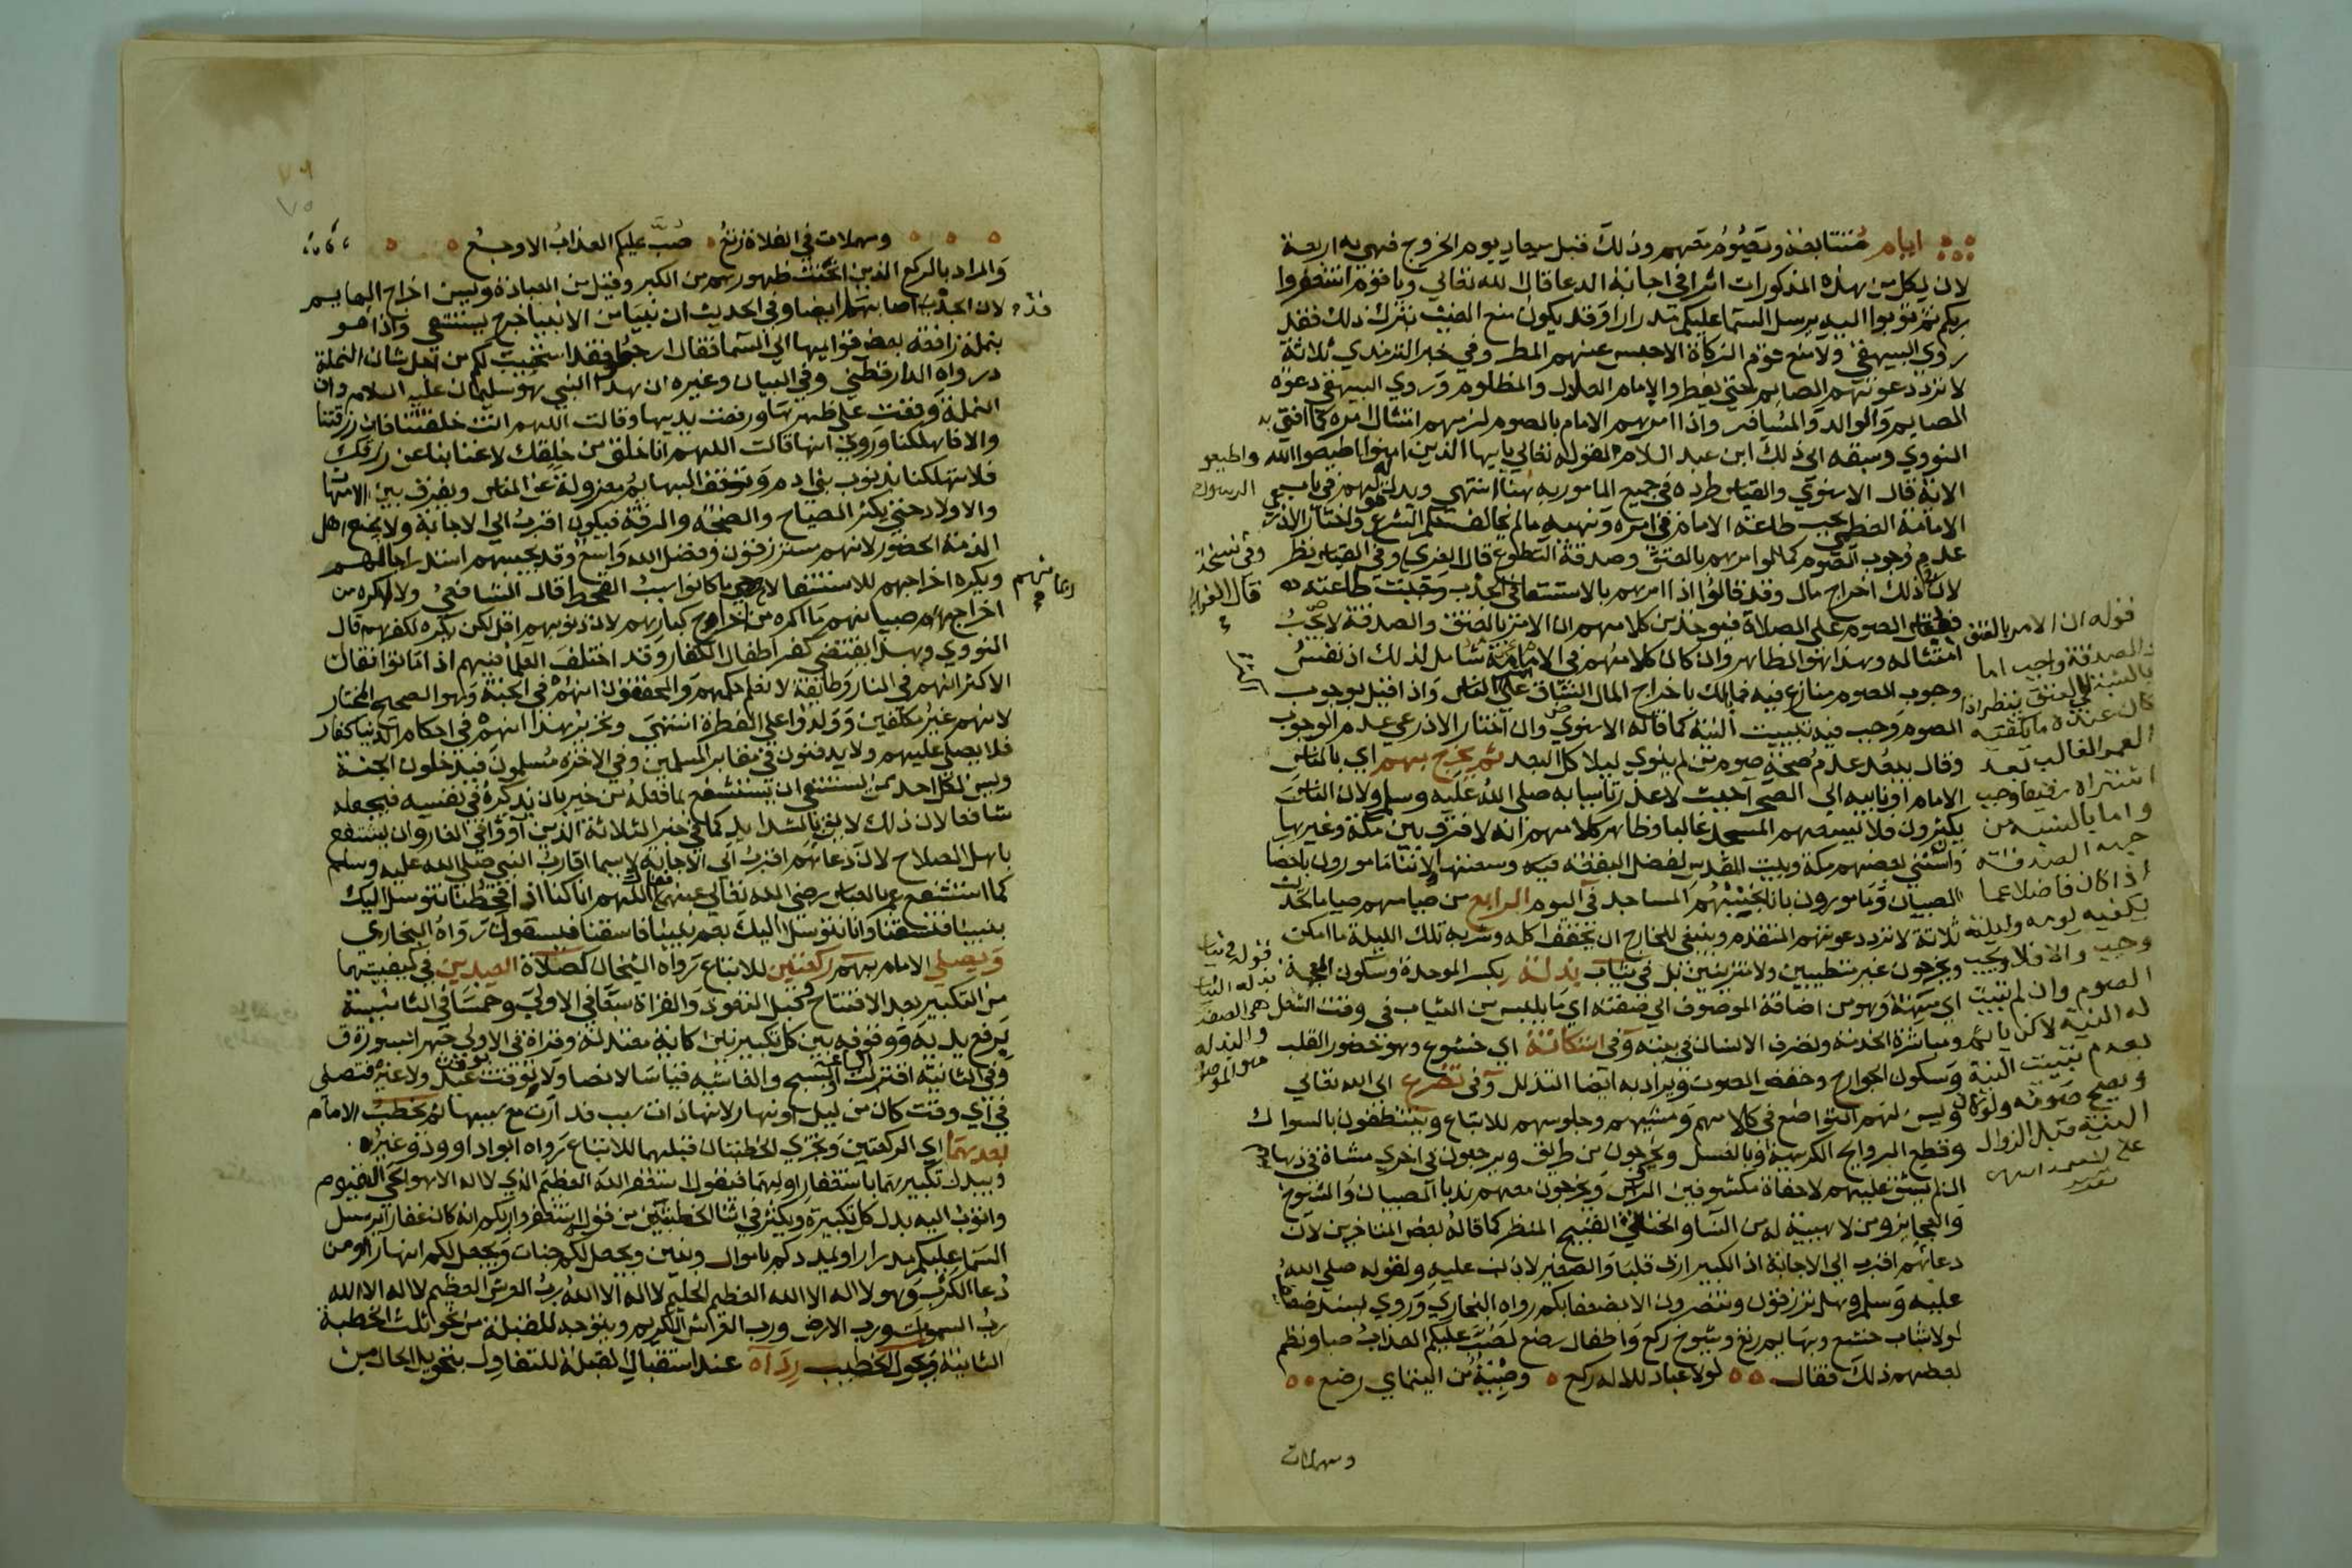 ايام متتابعة ويصوم معهم وذلك قبل ميعاد يوم الخروج فهي به اربعة
لان لكل من هذه المذكورات اثرا في اجابة الدعا قال الله تعالي ويا قوم استغفروا
ربكم ثم توبوا اليه يرسل السما عليكم مدرارا وقد يكون منع الغيث بترك ذلك فقد
روي البيهقي ولا منع قوم الزكاة الا حبس عنهم المطر وفي خبر الترمذي ثلاثة
لا ترد دعوتهم الصايم حتي يفطر والامام العادل والمظلوم وروي البيهقي دعوة
الصايم والوالد والمسافر واذا امرهم الامام بالصوم لزمهم امتثال امره كما افتي به
النووي وسبقه الي ذلك ابن عبد السلام لقوله تعالي يايها الذين امنوا اطيعوا الله واطيعو الرسول
الاية قال الاسنوي والقياس طرده في جميع المامور به هنا انتهي ويدل له قولهم في باب
الامامة العظمي تجب طاعة الامام في امره ونهيه ما لم يخالف حكم الشرع واختار الاذرعي
عدم وجوب الصوم كما لو امرهم بالعتق وصدقة التطوع قال الغزي وفي القياس نظر
لان ذلك اخراج مال وقد قالوا اذا امرهم بالاستسقا في الجدب وجبت طاعته
الصوم علي الصلاة فيوخذ من كلامهم ان الامر بالعتق والصدقة لا يجب
امتثاله وهذا هو الظاهر وان كان كلامهم في الامامة شامل لذلك اذ نفس
وجوب الصوم منازع فيه فما بالك باخراج المال الشاق علي الناس واذا قيل بوجوب
الصوم وجب فيه تبييت النية كما قاله الاسنوي وان اختار الاذرعي عدم الوجوب
وقال يبعد عدم صحة صوم من لم ينوي ليلا كل البعد ثم يخرج بهم اي بالناس
الامام او نايبه الي الصحرا حيث لا عذر تاسيا به صلي الله عليه وسلم ولان الناس
يكثرون فلا يسعهم المسجد غالبا وظاهر كلامهم انه لا فرق بين مكة وغيرها
واستثني بعضهم مكة وبيت المقدس لفضل البقعة وسعتها لاننا مامورون باحضار
الصبيان ومامورون بانا نجنبهم المساجد في اليوم الرابع من صيامهم صياما لحديث
ثلاثة لا ترد دعوتهم المتقدم وينبغي للخارج ان يخفف اكله وشربه تلك الليلة ما امكن
ويخرجون غير متطيبين ولا متزينين بل في ثياب بذلة بكسر الموحدة وسكون المعجمة
اي مهنة وهو من اضافة الموصوف الي صفته اي ما يلبس من الثياب في وقت الشغل
ومباشرة الخدمة وتصرف الانسان في بيته وفي استكانة اي خشوع وهو حضور القلب
وسكون الجوارح وخفض الصوت ويراد به ايضا التذلل وفي تضرع الي الله تعالي
وليس لهم التواضع في كلامهم ومشيهم وجلوسهم للاتباع ويتنظفون بالسواك
وقطع الروايح الكريهة وبالغسل ويخرجون من طريق ويرجعون في اخري مشاة في ذهابهم
ان لم يشق عليهم لا حفاة مكشوفين الروس ويخرجون معهم ندبا الصبيان والشيوخ
والعجايز ومن لا هيية له من النسا والخنثي القبيح المنظر كما قاله بعض المتاخرين لان
دعاهم اقرب الي الاجابة اذ الكبير ارق قلبا والصغير لا ذنب عليه ولقوله صلي الله
عليه وسلم وهل ترزقون وتنصرون الا بضعفايكم رواه البخاري وروي بسند ضعيف
لولا شباب خشع وبهايم رتع وشيوخ ركع واطفال رضع لصب عليكم العذاب صبا ونظم
بعضهم ذلك فقال لولا عباد للاله ركع وصبية من اليتامي رضع
ومهملات
وفي نسخة
قال الغزي
قوله ان الامر بالعتق
والصدقة واجب اما
بالنسبة للعتق ينظر اذا
كان عنده ما يكفيه
العمر الغالب بعد
اشتراه رقيقا وجب
واما بالنسبة من
جهه الصدقات
اذا كان فاضلا عما
يكفيه يومه وليلة
وجب والا فلا ويجب
الصوم وان لم تبيت
له النية لاكن ياثم
بعدم تبييت النية
ويصح صومه ولو كان
النية قبل الزوال
قوله في ثياب
بذله الثياب
هي الصفة
والبذله
هو الموصوف
ومهملات في الفلاة رتع صب عليكم العذاب الاوجع
والمراد بالركع الذين انحنت ظهورهم من الكبر وقيل من العبادة ويسن اخراج البهايم
لان الجدب اصابهم ايضا وفي الحديث ان نبيا من الانبيا خرج يستسقي واذا هو
بنملة رافعة بعض قوايمها الي السما فقال ارجعوا فقد استجيب لكم من اجل شان النملة
رواه الدارقطني وفي البيان وغيره ان هذا النبي هو سليمان عليه السلام وان
النملة وقعت علي ظهرها ورفعت يديها وقالت اللهم انت خلقتنا فان رزقتنا
والا فاهلكنا وروي انها قالت اللهم انا خلق من خلقك لا غنا بنا عن رزقك
فلا تهلكنا بذنوب بني ادم وتوقف البهايم معزولة عن الناس ويفرق بين الامهات
والاولاد حتي يكثر الصياح والضجة والرقة فيكون اقرب الي الاجابة ولا يمنع اهل
الذمة الحضور لانهم مسترزقون وفضل الله واسع وقد يجيبهم استدراجا لهم
ويكره اخراجهم للاستسقا لانهم ربما كانوا سبب القحط قال الشافعي ولا اكره من
اخراج صبيانهم ما اكره من اخراج كبارهم لان ذنوبهم اقل لكن يكره لكفرهم قال
النووي وهذا يقتضي كفر اطفال الكفار وقد اختلف العلما فيهم اذا ماتوا فقال
الاكثر انهم في النار وطايفة لا نعلم حكمهم والمحققون انهم في الجنة وهو الصحيح المختار
لانهم غير مكلفين وولدوا علي الفطرة انتهي وتحرير هذا انهم في احكام الدنيا كفار
فلا يصلي عليهم ولا يدفنون في مقابر المسلمين وفي الاخرة مسلمون فيدخلون الجنة
ويسن لكل احد ممن يستسقي ان يستشفع بما فعله من خير بان يذكره في نفسه فيجعله
شافعا لان ذلك لايق بالشدايد كما في خبر الثلاثة الذين اووا في الغار وان يستشفع
باهل الصلاح لان دعاهم اقرب الي الاجابة لاسيما اقارب النبي صلي الله عليه وسلم
كما استشفع عمر بالعباس رضي الله تعالي عنهما فقال اللهم انا كنا اذا قحطنا نتوسل اليك
بنبينا فتسقنا وانا نتوسل اليك بعم نبينا فاسقنا فيسقون رواه البخاري
ويصلي الامام بهم ركعتين للاتباع رواه الشيخان كصلاة العيدين في كيفيتهما
من التكبير بعد الافتتاح وقبل التعوذ والقراة سبعا في الاولي وخمسا في الثانية
يرفع يديه ووقوفه بين كل تكبيرتين كاية معتدلة وقراة في الاولي جهرا بسورة ق
وفي الثانية اقتربت او سبح والغاشية قياسا لا نصا ولا توقت بوقت عيد ولا غيره فتصلي
في اي وقت كان من ليل او نهار لانها ذات سبب فدارت مع سببها ثم يخطب الامام
بعدهما اي الركعتين ويجزي الخطبتان قبلهما للاتباع رواه ابو داوود وغيره
ويبدل تكبيرهما باستغفار اولهما فيقول استغفر الله العظيم الذي لا اله الا هو الحي القيوم
واتوب اليه بدل كل تكبيرة ويكثر في اثنا الخطبتين من قول استغفروا ربكم انه كان غفارا يرسل
السما عليكم مدرارا ويمددكم باموال وبنين ويجعل لكم جنات ويجعل لكم انهارا ومن
دعا الكرب وهو لا اله الا الله العظيم الحليم لا اله الا الله رب العرش العظيم لا اله الا الله
رب السموات ورب الارض ورب العرش الكريم ويتوجه للقبلة من نحو ثلث الخطبة
الثانية ويحول الخطيب رداه عند استقبال القبلة للتفاول بتحويل الحال من